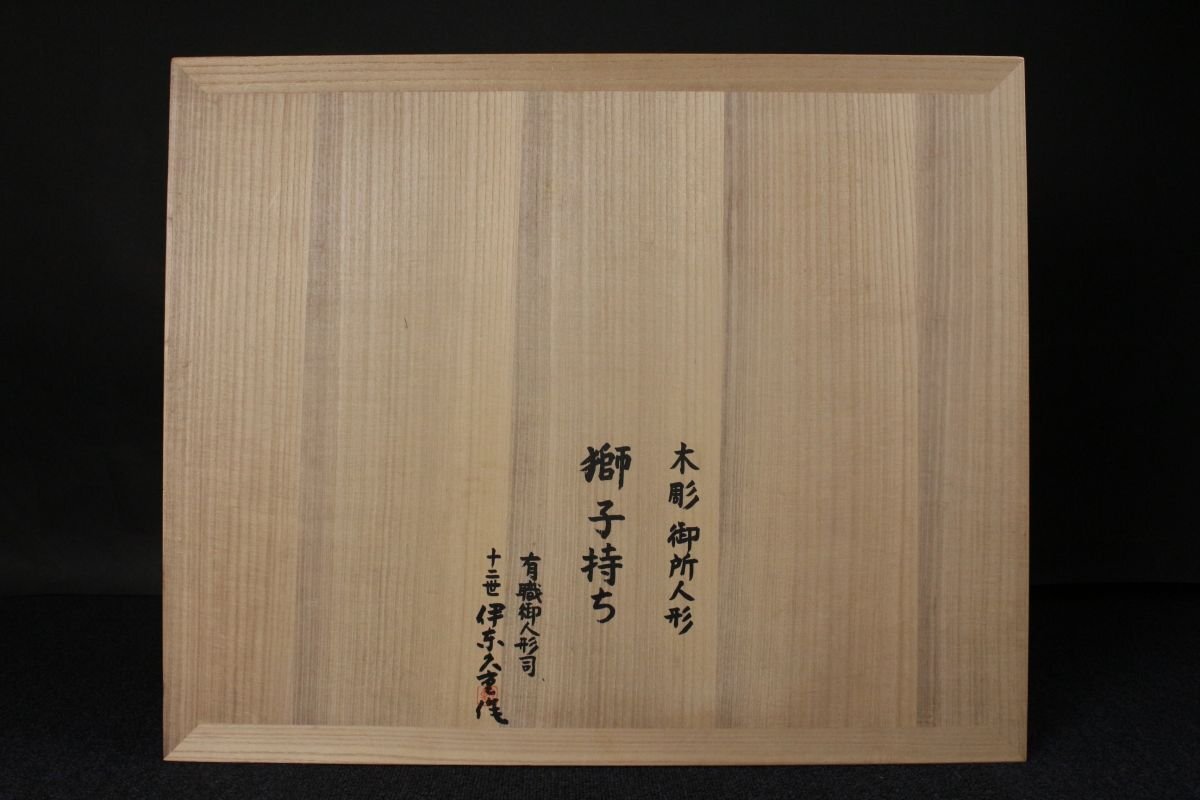 木彫御所人形
獅子持ち
有職御人形司
十二世 伊东久重作